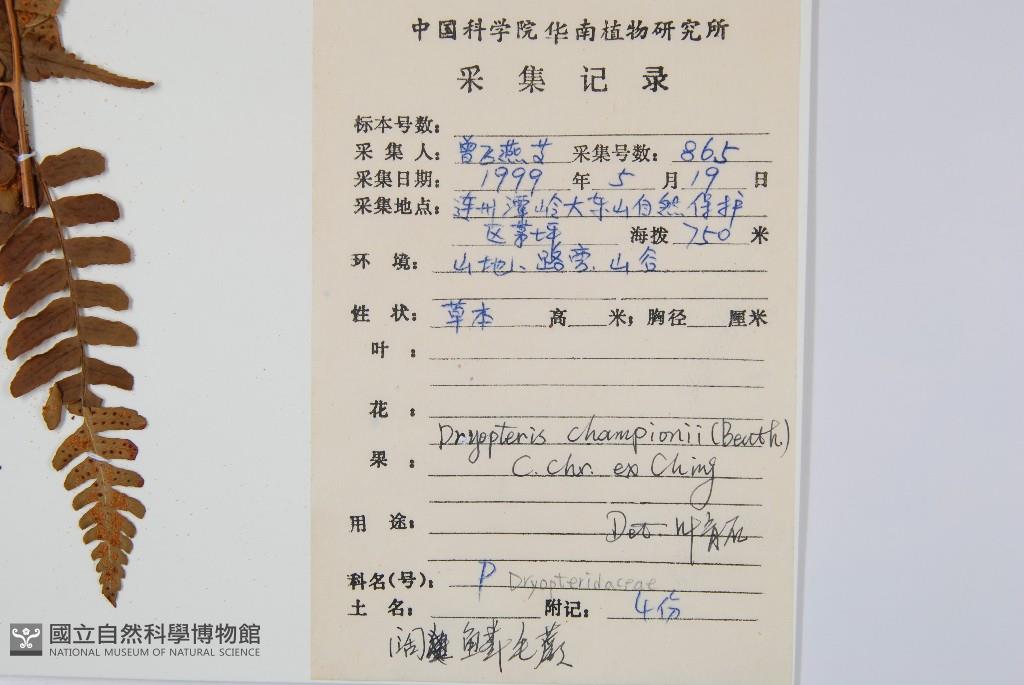 中国科学院华南植物研究所
采集记录
标本号数：
采集人：曾飞燕 采集号数：865
采集日期：1999年5月19日
采集地点：连州潭岭大东山自然保护
区茅坪 海拨750米
环境：山地、路旁、山谷
性状：草本 高 米；胸径 厘米
叶：
花：
Dryopteris championii (Benth.)
果：
C. Chr. ex Ching
用途：
Det. 叶育石
科名(号)：P Dryopteridaceae
土名： 附记：4份
阔鳞毛蕨
國立自然科學博物館
NATIONAL MUSEUM OF NATURAL SCIENCE